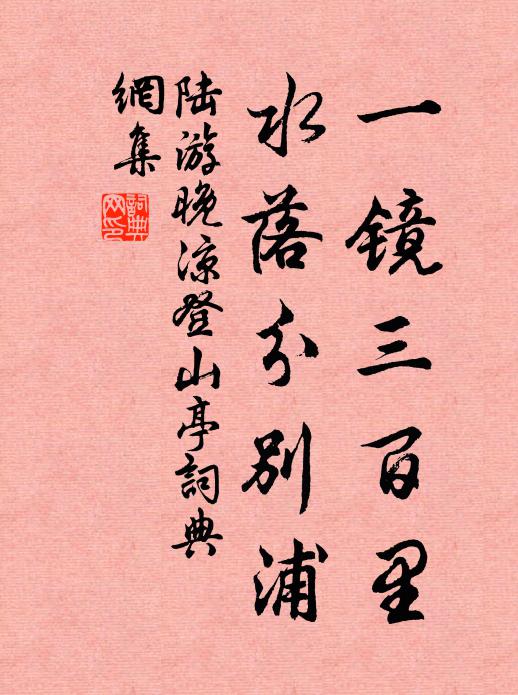 一镜三百里
水落分别浦
陆游晚凉登山亭词典
網集
詞典
网印